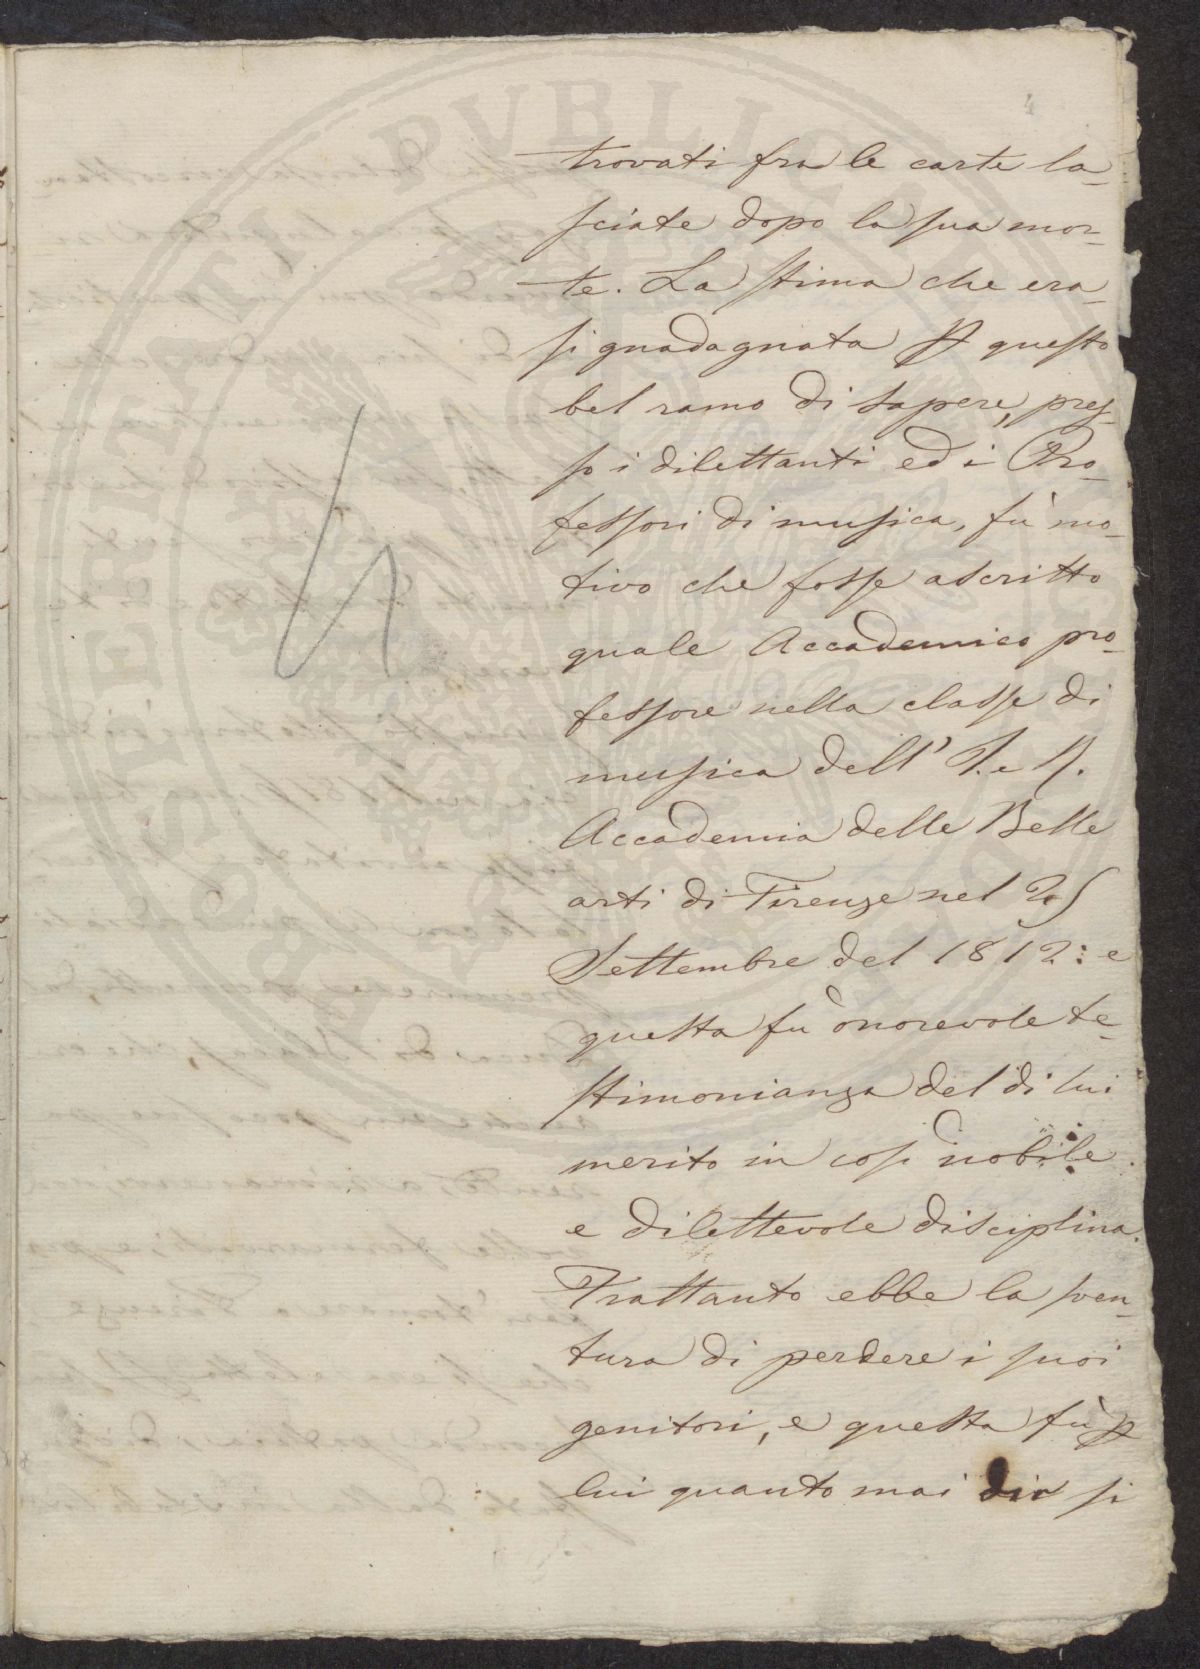 4
trovati fra le carte la-
sciate dopo la sua mor-
te. La stima che era-
si guadagnata p questo
bel ramo di sapere, pres-
so i dilettanti ed i Pro-
fessori di musica, fù mo-
tivo che fosse ascritto
quale Accademico pro-
fessore nella classe di
musica dell' I. e R.
Accademia delle Belle
arti di Firenze nel 25
Settembre del 1812: e
questa fù onorevole te-
stimonianza del di lui
merito in così nobile
e dilettevole disciplina.
Frattanto ebbe la sven-
tura di perdere i suoi
genitori, e questa fù p
lui quanto mai dir si